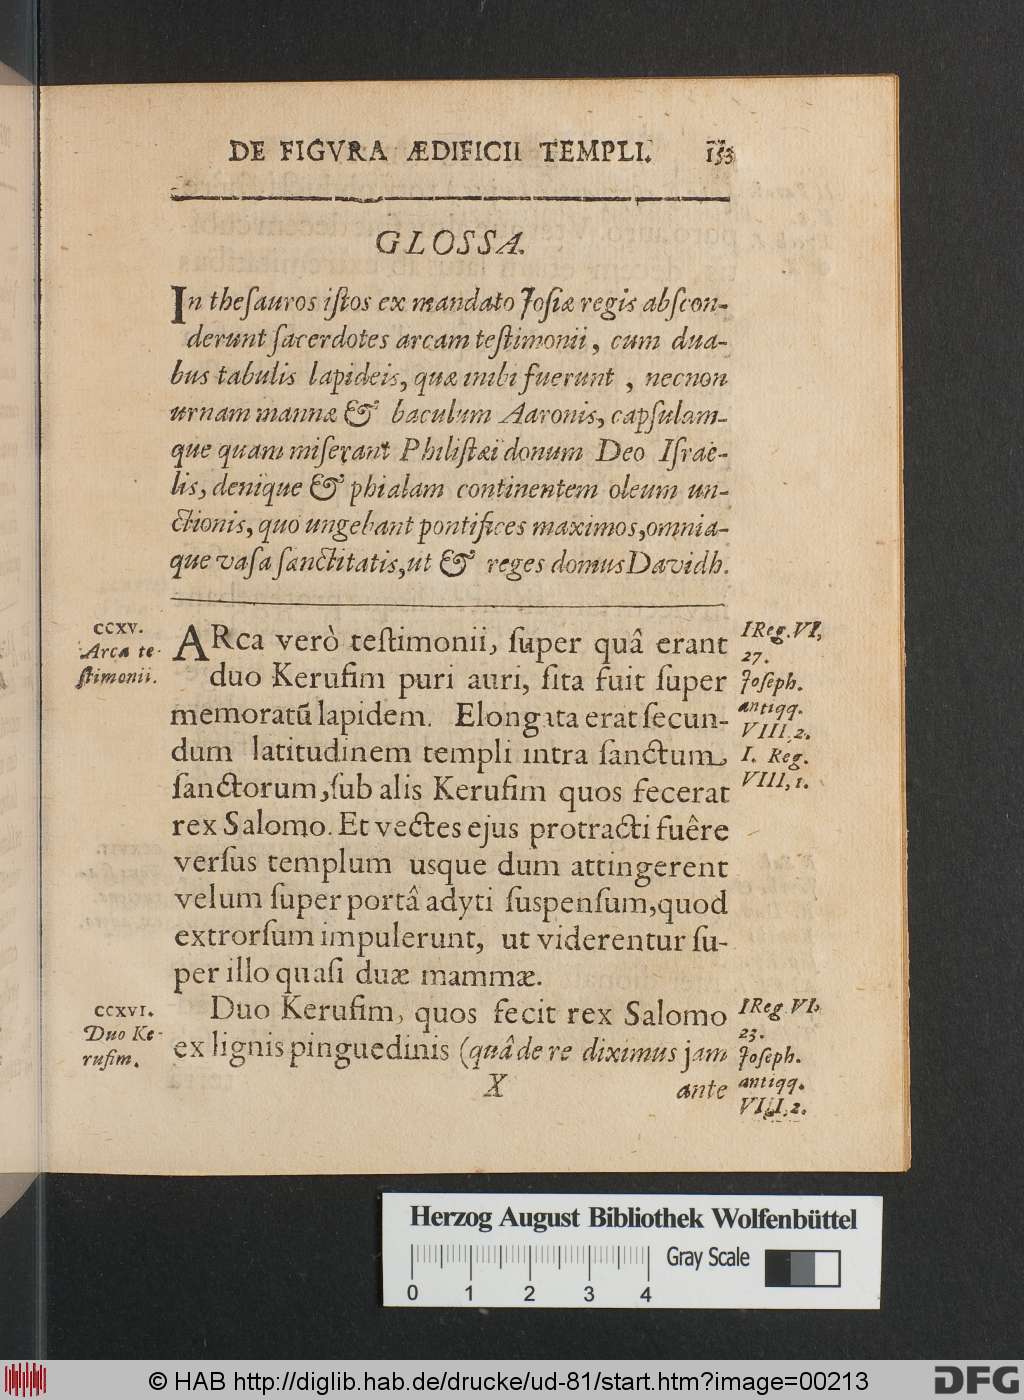 DE FIGVRA ÆDIFICII TEMPLI. 153
GLOSSA.
In theſauros iſtos ex mandato Joſiæ regis abſcon-
derunt ſacerdotes arcam teſtimonii, cum dua-
bus tabulis lapideis, quæ inibi fuerunt, necnon
urnam mannæ & baculum Aaronis, capſulam-
que quam miſerant Philiſtæi donum Deo Iſraë-
lis, denique & phialam continentem oleum un-
ctionis, quo ungebant pontifices maximos, omnia-
que vaſa ſanctitatis, ut & reges domus Davidh.
CCXV.
Arca te-
ſtimonii.
ARca verò teſtimonii, ſuper quâ erant
duo Keruſim puri auri, ſita fuit ſuper
memoratũ lapidem. Elongata erat ſecun-
dum latitudinem templi intra ſanctum
ſanctorum, ſub alis Keruſim quos fecerat
rex Salomo. Et vectes ejus protracti fuêre
verſus templum usque dum attingerent
velum ſuper portâ adyti ſuspenſum, quod
extrorſum impulerunt, ut viderentur ſu-
per illo quaſi duæ mammæ.
I Reg. VI,
27.
Joſeph.
antiqq.
VIII, 2.
I. Reg.
VIII, 1.
CCXVI.
Duo Ke-
ruſim.
Duo Keruſim, quos fecit rex Salomo
ex lignis pinguedinis (quâ de re diximus jam
X ante
I Reg VI,
23.
Joſeph.
antiqq.
VIII, 2.
Herzog August Bibliothek Wolfenbüttel
Gray Scale
0 1 2 3 4
© HAB http://diglib.hab.de/drucke/ud-81/start.htm?image=00213
DFG